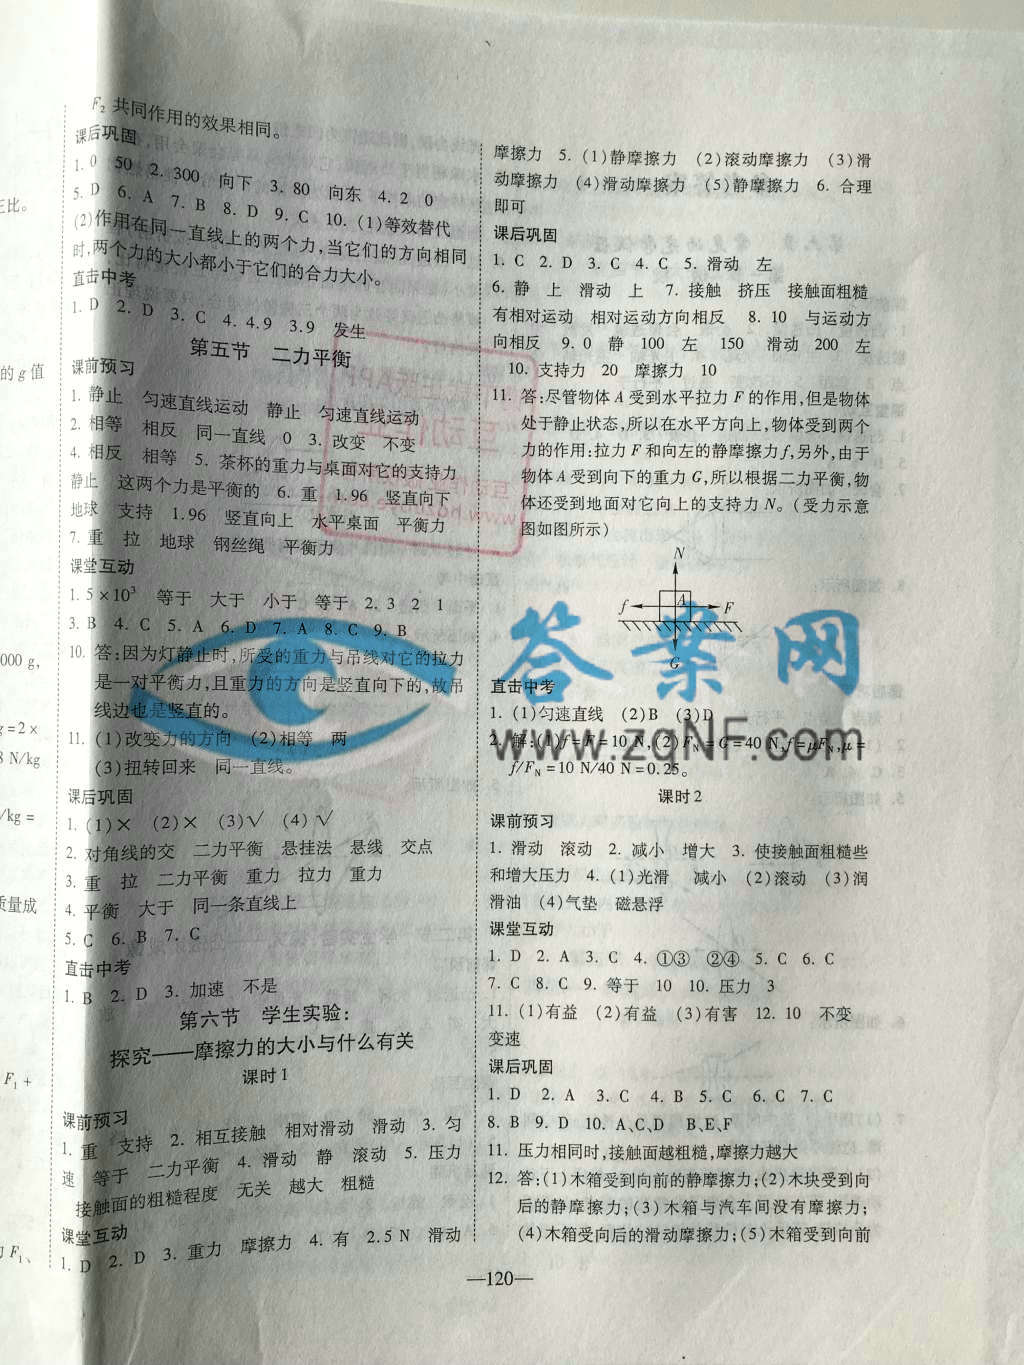 F₂ 共同作用的效果相同。
课后巩固
1. 0 50 2. 300 向下 3. 80 向东 4. 2 0
5. D 6. A 7. B 8. D 9. C 10. (1)等效替代
(2)作用在同一直线上的两个力,当它们的方向相同
时,两个力的大小都小于它们的合力大小。
直击中考
1. D 2. D 3. C 4. 4.9 3.9 发生
第五节 二力平衡
课前预习
1. 静止 匀速直线运动 静止 匀速直线运动
2. 相等 相反 同一直线 0 3. 改变 不变
4. 相反 相等 5. 茶杯的重力与桌面对它的支持力
静止 这两个力是平衡的 6. 重 1.96 竖直向下
地球 支持 1.96 竖直向上 水平桌面 平衡力
7. 重 拉 地球 钢丝绳 平衡力
课堂互动
1. 5×10³ 等于 大于 小于 等于 2. 3 2 1
3. B 4. C 5. A 6. D 7. A 8. C 9. B
10. 答:因为灯静止时,所受的重力与吊线对它的拉力
是一对平衡力,且重力的方向是竖直向下的,故吊
线边也是竖直的。
11. (1)改变力的方向 (2)相等 两
(3)扭转回来 同一直线。
课后巩固
1. (1)× (2)× (3)√ (4)√
2. 对角线的交 二力平衡 悬挂法 悬线 交点
3. 重 拉 二力平衡 重力 拉力 重力
4. 平衡 大于 同一条直线上
5. C 6. B 7. C
直击中考
1. B 2. D 3. 加速 不是
第六节 学生实验:
探究——摩擦力的大小与什么有关
课时1
课前预习
1. 重 支持 2. 相互接触 相对滑动 滑动 3. 匀
速 等于 二力平衡 4. 滑动 静 滚动 5. 压力
接触面的粗糙程度 无关 越大 粗糙
课堂互动
1. D 2. D 3. 重力 摩擦力 4. 有 2.5 N 滑动
摩擦力 5. (1)静摩擦力 (2)滚动摩擦力 (3)滑
动摩擦力 (4)滑动摩擦力 (5)静摩擦力 6. 合理
即可
课后巩固
1. C 2. D 3. C 4. C 5. 滑动 左
6. 静 上 滑动 上 7. 接触 挤压 接触面粗糙
有相对运动 相对运动方向相反 8. 10 与运动方
向相反 9. 0 静 100 左 150 滑动 200 左
10. 支持力 20 摩擦力 10
11. 答:尽管物体 A 受到水平拉力 F 的作用,但是物体
处于静止状态,所以在水平方向上,物体受到两个
力的作用:拉力 F 和向左的静摩擦力 f,另外,由于
物体 A 受到向下的重力 G,所以根据二力平衡,物
体还受到地面对它向上的支持力 N。(受力示意
图如图所示)
N
f A F
G
直击中考
1. (1)匀速直线 (2)B (3)D
2. 解:(1)f=F=10 N,(2)F_N=G=40 N,f=μF_N,μ=
f/F_N=10 N/40 N=0.25。
课时2
课前预习
1. 滑动 滚动 2. 减小 增大 3. 使接触面粗糙些
和增大压力 4. (1)光滑 减小 (2)滚动 (3)润
滑油 (4)气垫 磁悬浮
课堂互动
1. D 2. A 3. C 4. ①③ ②④ 5. C 6. C
7. C 8. C 9. 等于 10 10. 压力 3
11. (1)有益 (2)有益 (3)有害 12. 10 不变
变速
课后巩固
1. D 2. A 3. C 4. B 5. C 6. C 7. C
8. B 9. D 10. A、C、D B、E、F
11. 压力相同时,接触面越粗糙,摩擦力越大
12. 答:(1)木箱受到向前的静摩擦力;(2)木块受到向
后的静摩擦力;(3)木箱与汽车间没有摩擦力;
(4)木箱受向后的滑动摩擦力;(5)木箱受到向前
—120—
答案网
www.zqNF.com
三比。
的 g 值
000 g,
g=2×
8 N/kg
/kg=
质量成
F₁+
F₁、